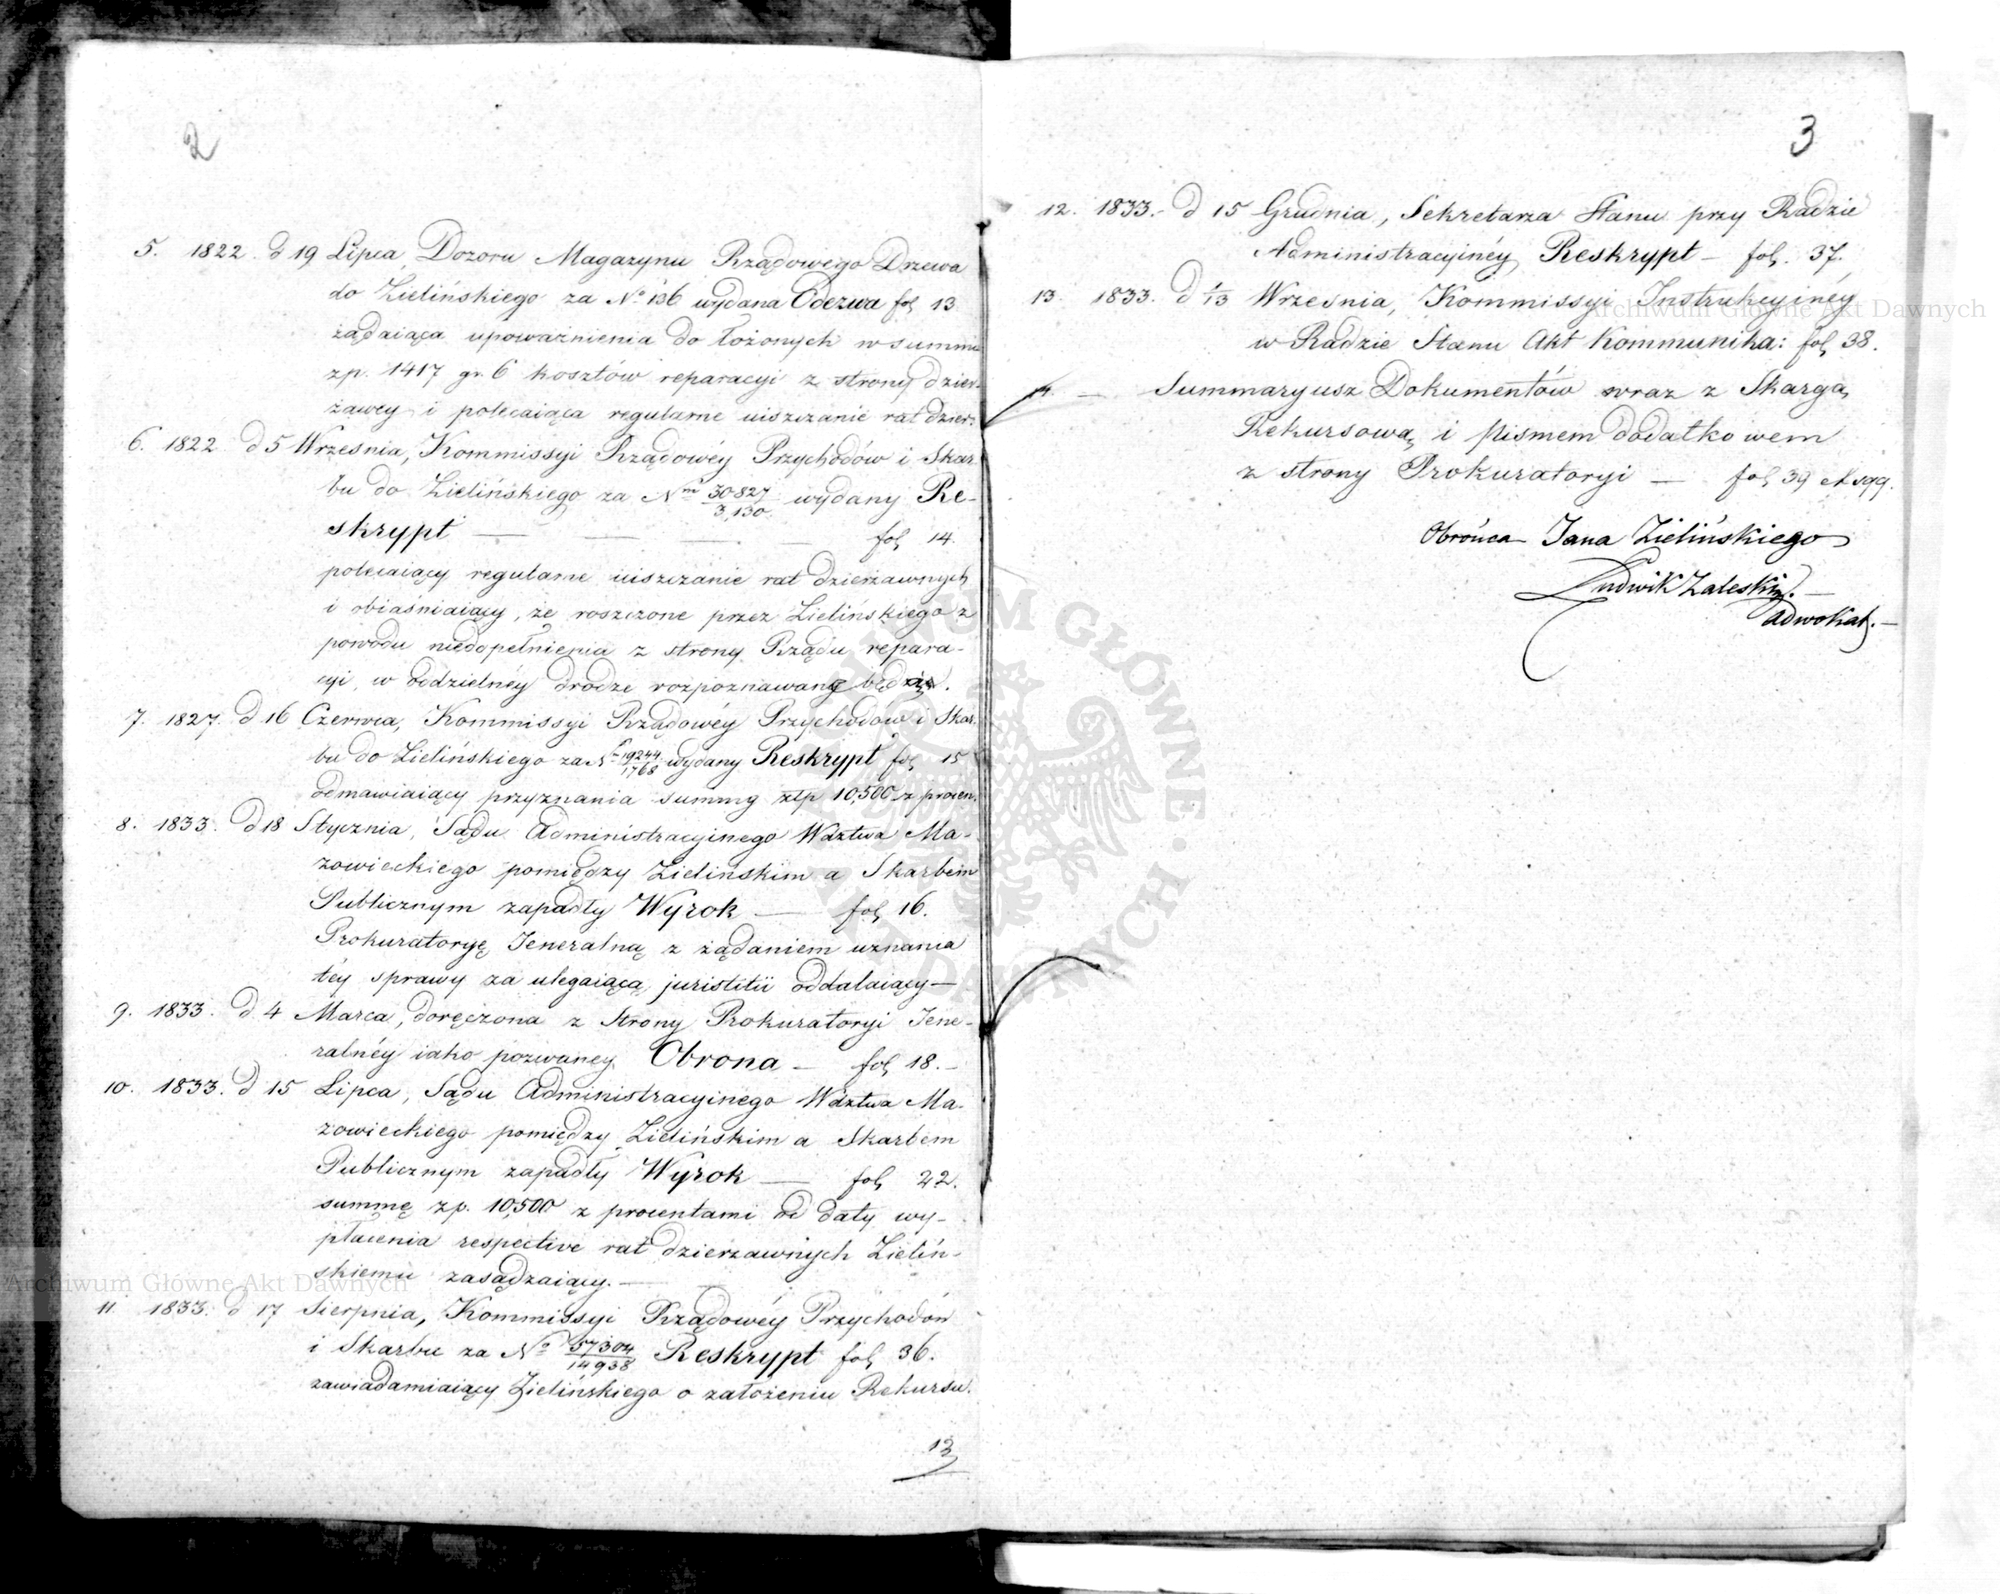 2
5. 1822. d 19 Lipca, Dozoru Magazynu Rządowego Drzewa
do Zielińskiego za No 136 wydana Odezwa fol 13
żądaiąca upoważnienia do łożonych w summie
zp. 1417 gr. 6 kosztów reparacyi z strony dzier-
żawcy i polecaiąca regularne uiszczanie rat dzier:
6. 1822 d 5 Wrzesnia, Kommissyi Rządowéy Przychodów i Skar
bu do Zielińskiego za Nm 30827/3,130 wydany Re-
skrypt — — — — fol 14.
polecaiący regularne uiszczanie rat dzierżawnych
i obiaśniaiący, że roszczone przez Zielińskiego z
powodu niedopełnienia z strony Rządu repara-
cyi, w oddzielnéy drodze rozpoznawane będzie.
7. 1827. d 16 Czerwca, Kommissyi Rządowéy Przychodów i Skar-
bu do Zielińskiego za N 19244/1768 wydany Reskrypt fol 15
odmawiaiący przyznania summy złp 10,500 z procen.
8. 1833. d 18 Stycznia, Sądu Administracyinego Wdztwa Ma-
zowieckiego pomiędzy Zielinskim a Skarbem
Publicznym zapadły Wyrok — fol 16.
Prokuratoryę Jeneralną z żądaniem uznania
téy sprawy za ulegaiącą juristitii oddalaiący —
9. 1833. d 4 Marca, doręczona z Strony Prokuratoryi Jene-
ralnéy iako pozwaney Obrona — fol 18. —
10. 1833. d 15 Lipca, Sądu Administracyinego Wdztwa Ma-
zowieckiego pomiędzy Zielińskim a Skarbem
Publicznym zapadły Wyrok — fol 22.
summę zp. 10,500 z procentami od daty wy-
płacenia respective rat dzierzawnych Zieliń-
skiemu zasądzaiący. —
11. 1833. d 17 Sierpnia, Kommissyi Rządowéy Przychodów
i Skarbu za No 57304/14938 Reskrypt fol 36.
zawiadamiaiący Zielińskiego o założeniu Rekursu.
3
12. 1833. d 15 Grudnia, Sekretarza Stanu przy Radzie
Administracyinéy Reskrypt — fol. 37.
13. 1833. d 1/13 Wrzesnia, Kommissyi Instrukcyinéy
w Radzie Stanu Akt Kommunika: fol 38.
14. — Summaryusz Dokumentów wraz z Skargą
Rekursową i pismem dodatkowem
z strony Prokuratoryi — fol 39 et sqq.
Obrońca Jana Zielińskiego
Ludwik Zaleski. —
Adwokat. —
Archiwum Główne Akt Dawnych
Archiwum Główne Akt Dawnych
ARCHIWUM GŁÓWNE AKT DAWNYCH